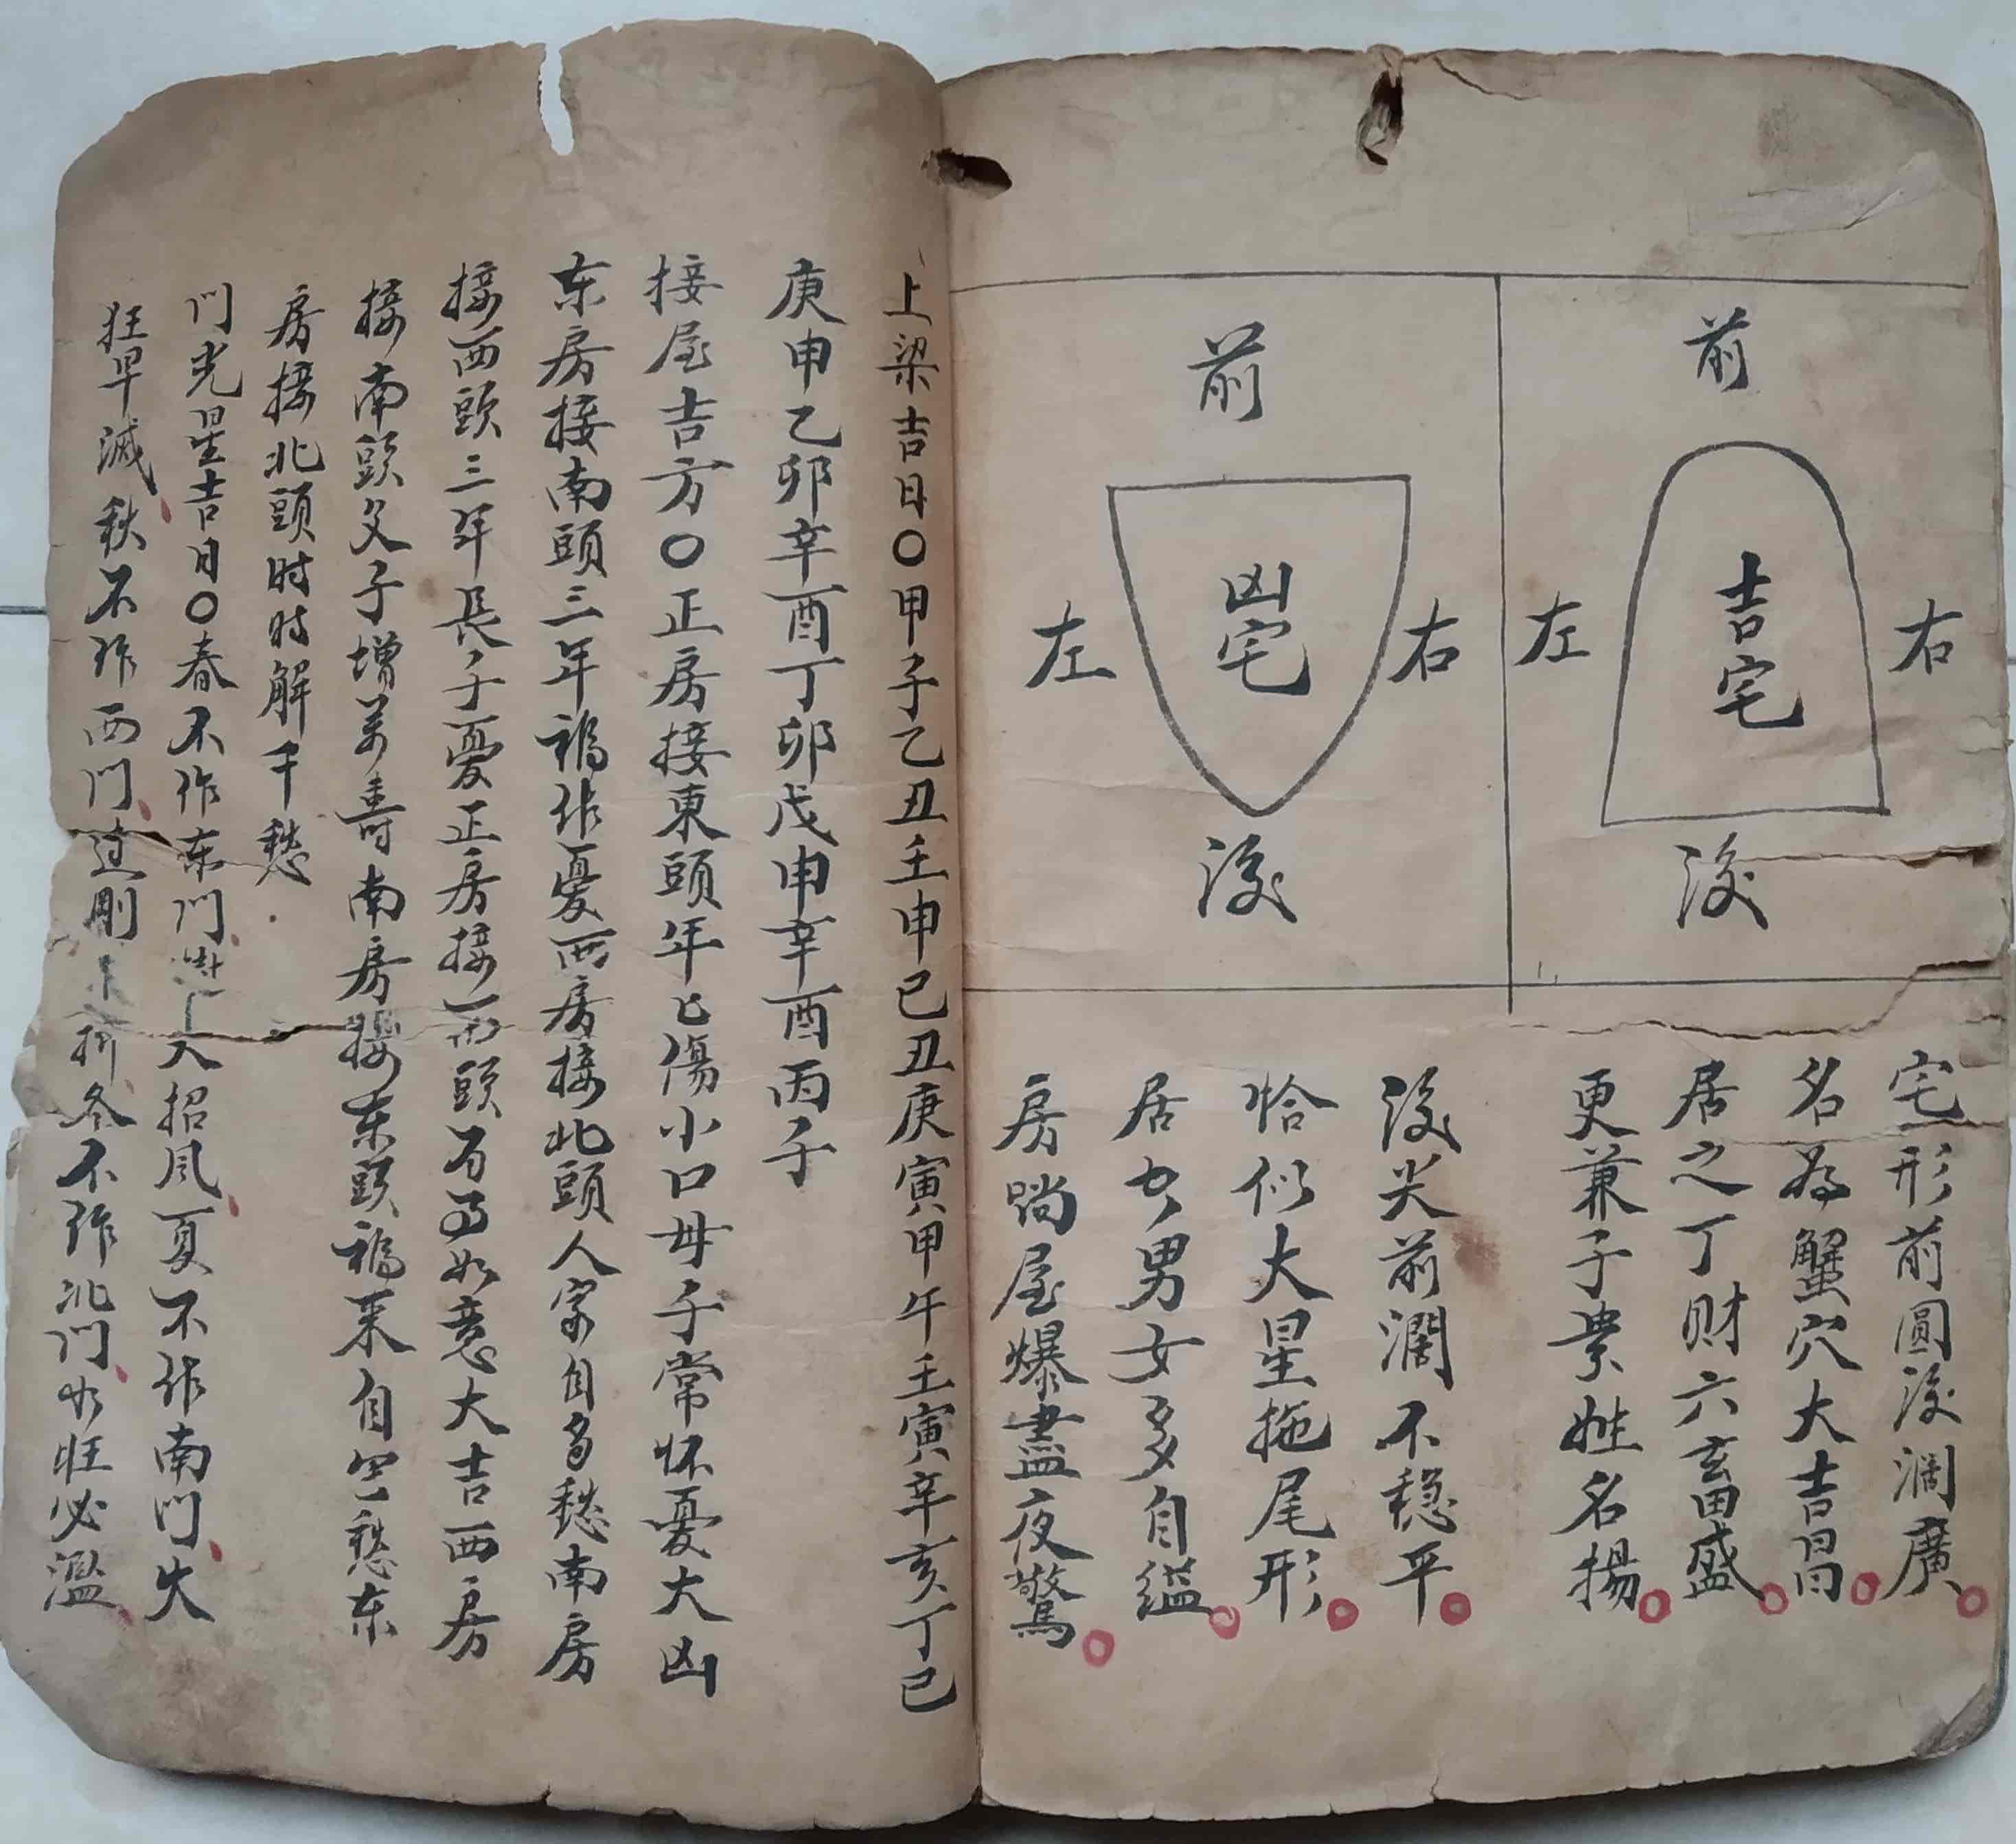 前
左
吉宅
右
後
前
左
凶宅
右
後
宅形前圓後濶廣
名為蟹穴大吉昌
居之丁财六畜盛
更兼子業姓名揚
後尖前濶不穏平
恰似大星拖尾形
居家男女多自縊
房塌屋爆盡夜驚
上梁吉日〇甲子乙丑壬申己丑庚寅甲午壬寅辛亥丁己
庚申乙卯辛酉丁卯戊申辛酉丙子
接屋吉方〇正房接東頭年年傷小口母子常怀憂大凶
东房接南頭三年禍作憂西房接北頭人家自多愁南房
接西頭三年長子憂正房接西頭万事如意大吉西房
接南頭父子增萬壽南房接东頭禍来自空愁东
房接北頭时时解千愁
门光星吉日〇春不作东门 入招風夏不作南门火
狂早滅秋不作西门 剛 折冬不作北门水旺必濫